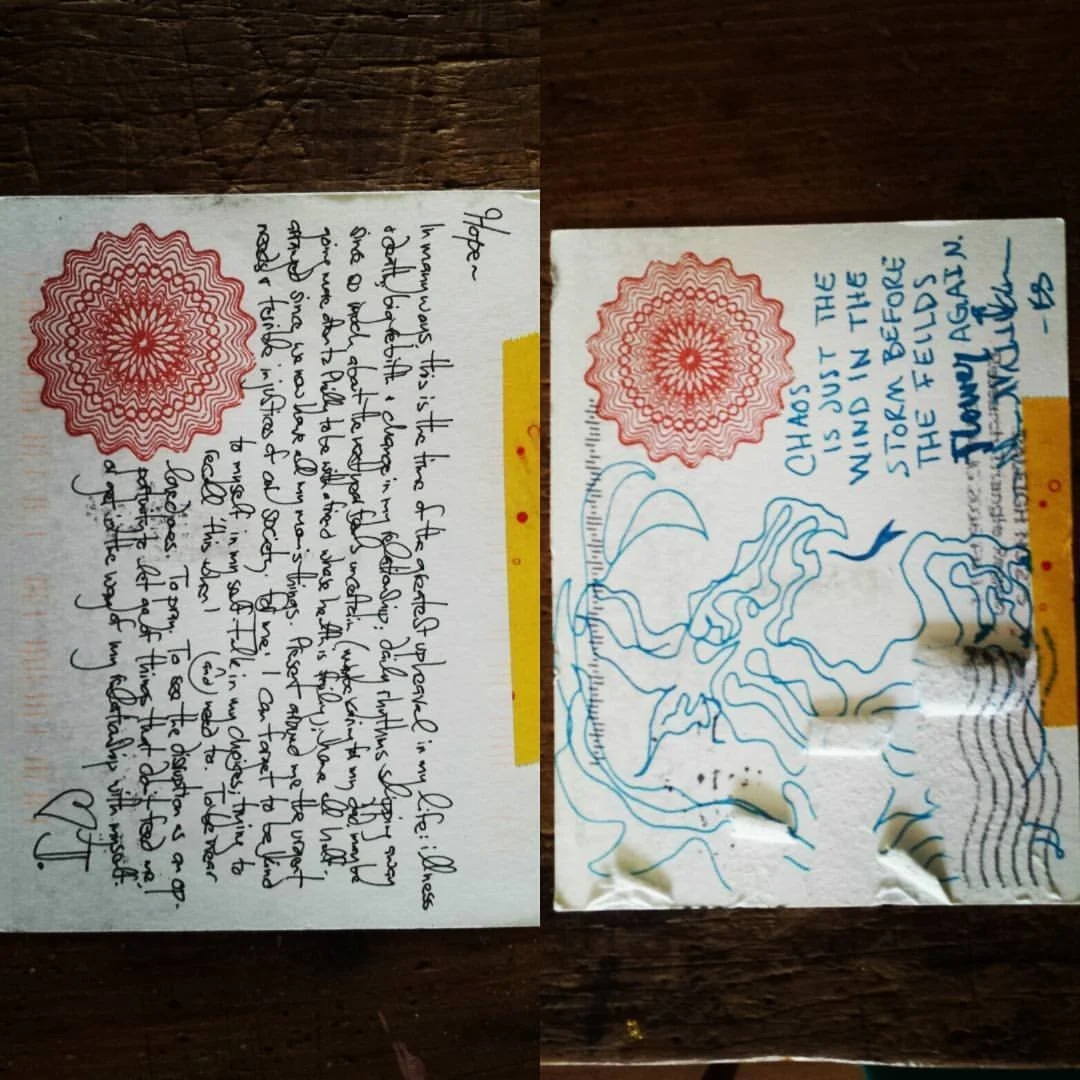 Hope~
In many ways, this is the time of the greatest upheaval in my life: illness
& death, & change in my relationship; daily rhythms slipping away
since so much about the next feels uncertain (maybe caring for my dad, maybe
going more often to Philly to be with a friend whose health is ); have all half-
since we now have all my mom's things. Present around me the urgent
needs & terrible injustices of our society. For me, I can forget to be kind
to myself in my self-talk, in my choices; trying to
recall this when I (and) need to. To be near
loved ones. To pray. To see the disruption as an op-
portunity to let go of things that didn't feed me
or get in the way of my relationship with myself.
J.
CHAOS
IS JUST THE
WIND IN THE
STORM BEFORE
THE FEILDS
FLOWER AGAIN.